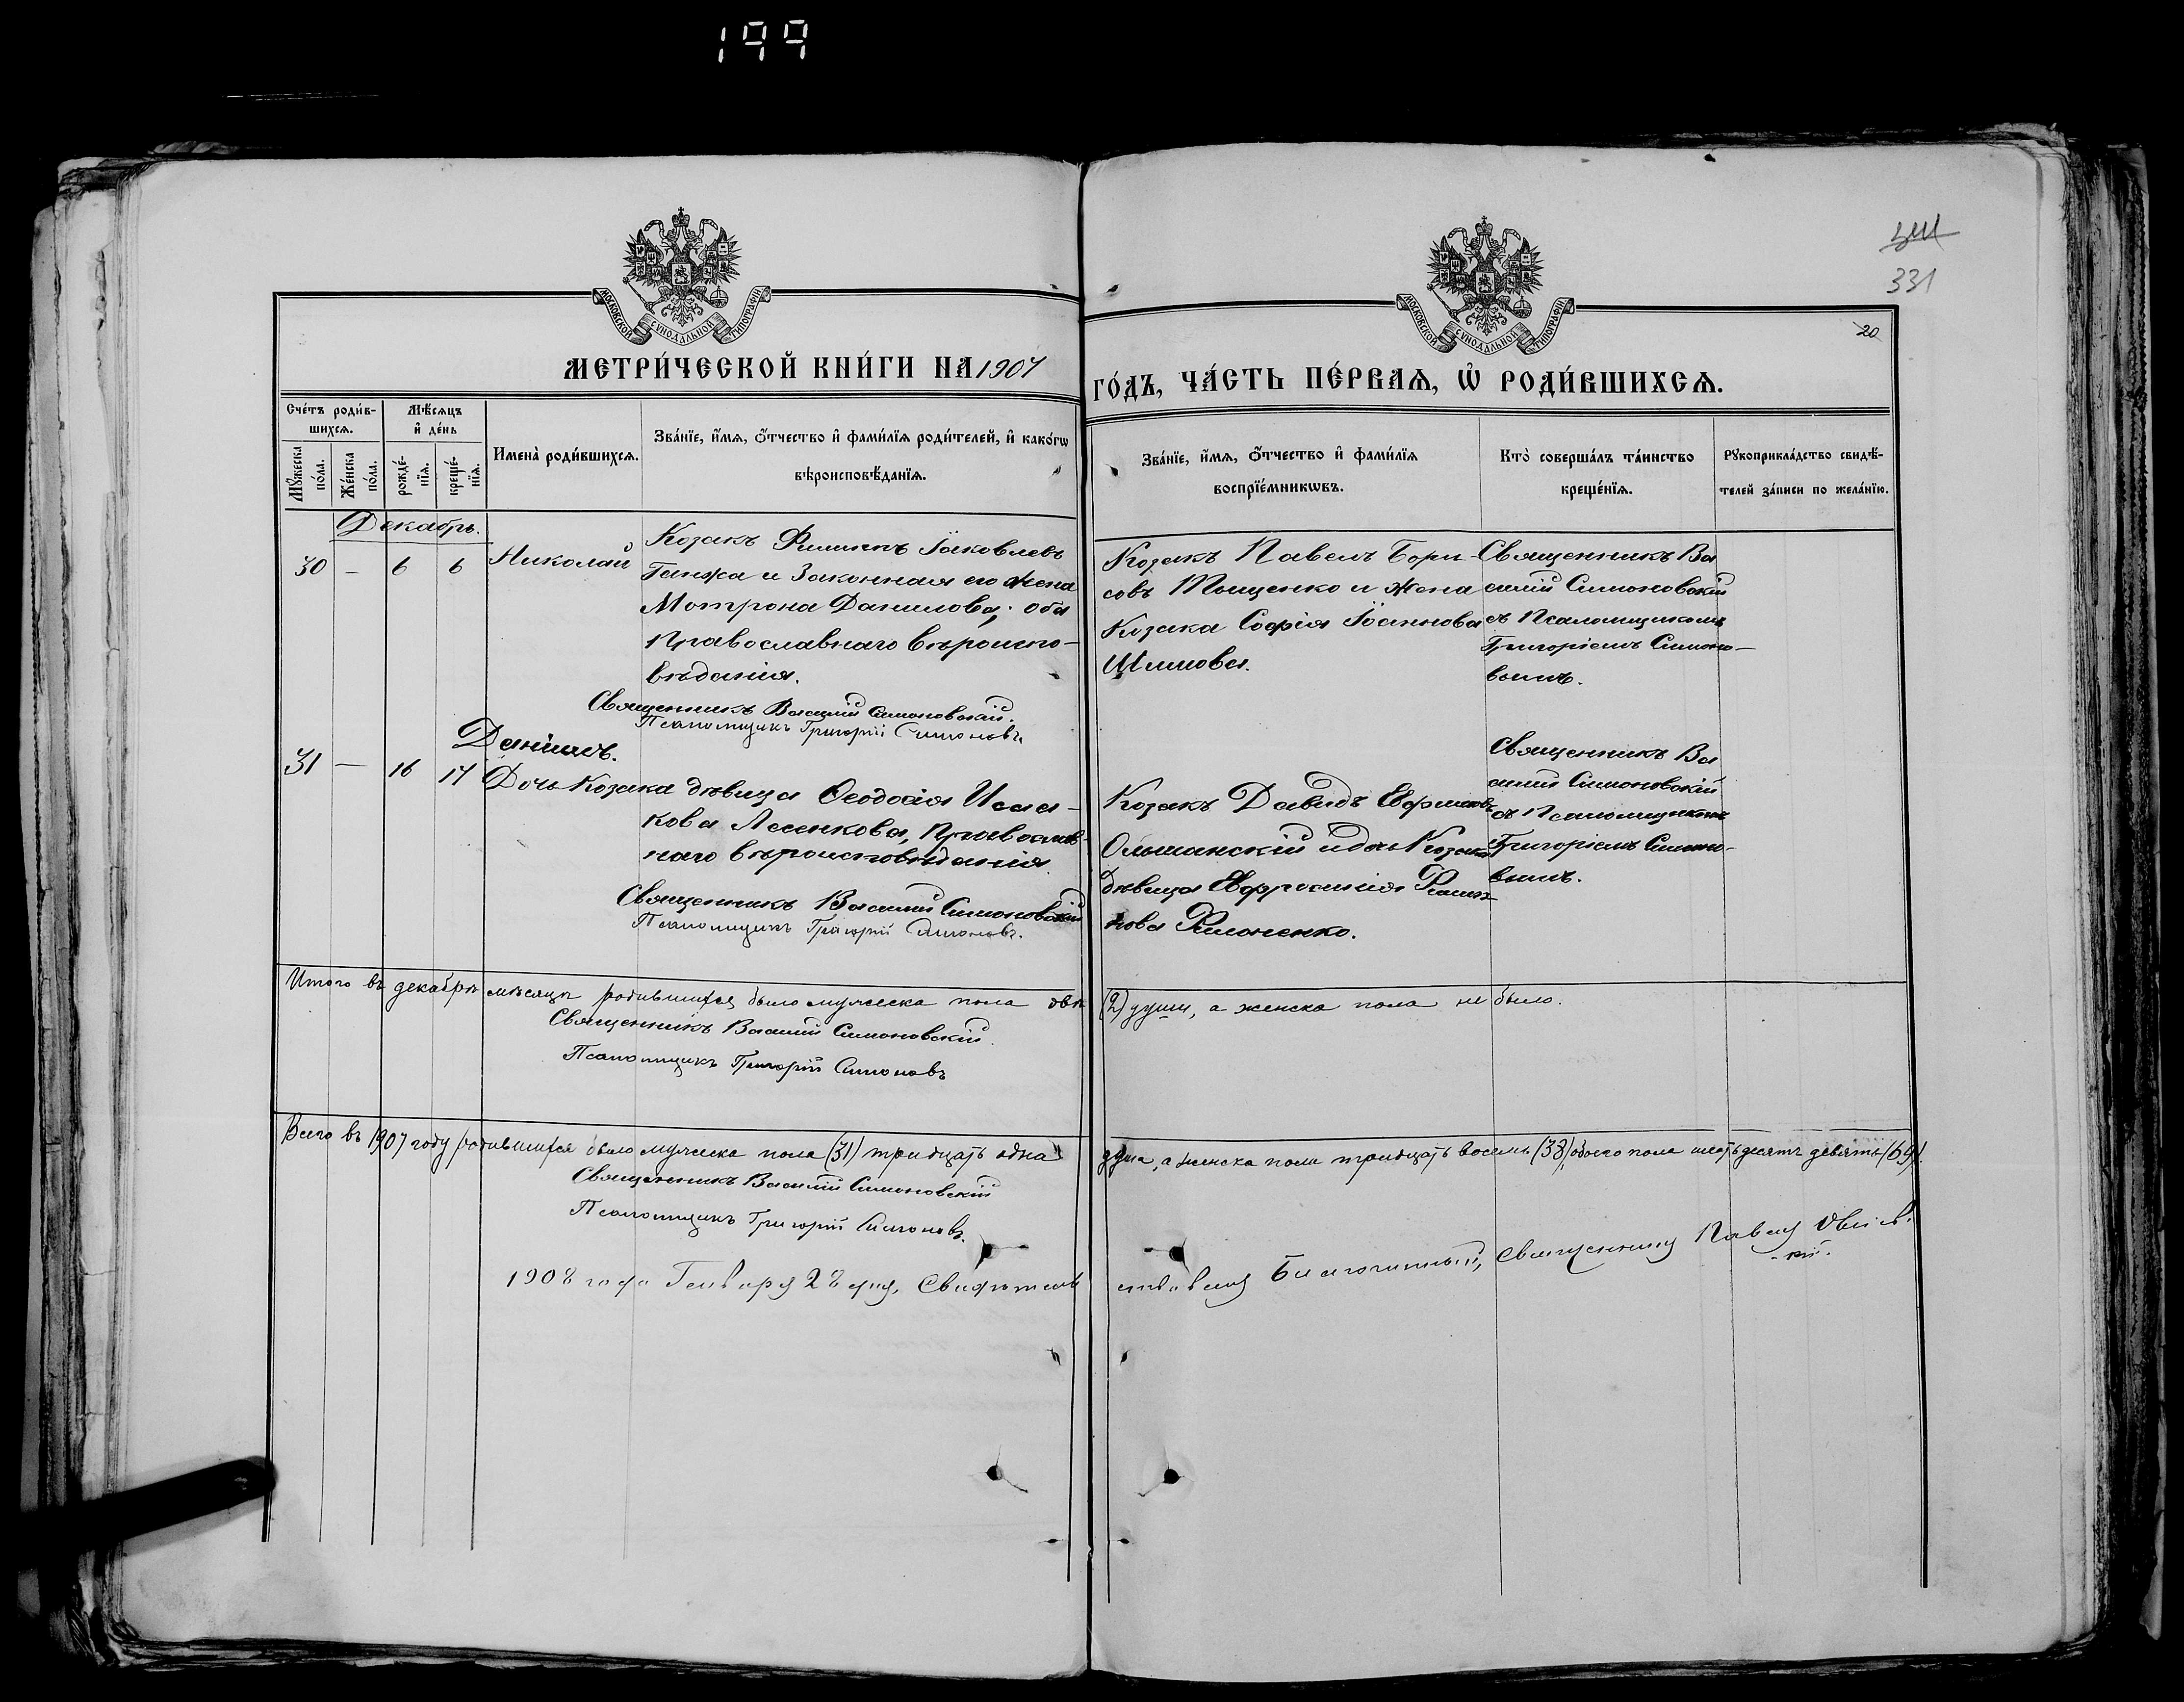 199
331
20
МОСКОВСКОЙ СУНОДАЛЬНОЙ ТИПОГРАФІИ
МОСКОВСКОЙ СУНОДАЛЬНОЙ ТИПОГРАФІИ
МЕТРИ́ЧЕСКОЙ КНИ́ГИ НА 1907
ГО́ДЪ, ЧА́СТЬ ПЕ́РВАЯ, Ѡ҆ РОДИ́ВШИХСЯ.
Сче́тъ роди́в-
шихся.
Мꙋ́жеска по́ла.
Же́нска по́ла.
Мѣ́сяцъ
и҆ де́нь
рожде́-
нїя.
креще́-
нїя.
Имена̀ роди́вшихся.
Зва́нїе, и҆́мя, ѻ҆́тчество и҆ фами́лїя роди́телей, и҆ како́гѡ
вѣроисповѣ́данїя.
Зва́нїе, и҆́мя, ѻ҆́тчество и҆ фами́лїя
воспрїе́мникѡвъ.
Кто̀ соверша́лъ та́инство
креще́нїя.
Рꙋкоприкла́дство свидѣ́-
телей за́писи по жела́нїю.
Декабрь.
30 — 6 6 Николай
Козакъ Филиппъ Іаковлевъ
Ганжа и Законная его жена
Мотрона Данилова; оба
Православнаго вѣроиспо-
вѣданія.
Священникъ Василій Симоновскій.
Псаломщикъ Григорій Симоновъ
Козакъ Павелъ Бори-
совъ Тыщенко и жена
Козака Софія Іоаннова
Священникъ Ва
силій Симоновскій
съ Псаломщикомъ
Григоріемъ Симоно-
вымъ.
31 — 16 17 Даніилъ.
Дочь Козака дѣвица Ѳеодосія Исаа-
кова Лесикова, Православ-
наго вѣроисповѣданія.
Священникъ Василій Симоновскій
Псаломщикъ Григорій Симоновъ.
Козакъ Давидъ Ефимовъ
Ольшанскій и дочь Козака
дѣвица Евфросинія Филип-
пова Филоненко.
Священникъ Ва
силій Симоновскій
съ Псаломщикомъ
Григоріемъ Симоно-
вымъ.
Итого въ декабрѣ мѣсяцѣ родившихся было мужеска пола двѣ (2) души, а женска пола не было.
Священникъ Василій Симоновскій.
Псаломщикъ Григорій Симоновъ
Всего въ 1907 году родившихся было мужеска пола (31) тридцать одна душа, а женска пола тридцать восемь (38), обоего пола шестьдесятъ девять (69).
Священникъ Василій Симоновскій
Псаломщикъ Григорій Симоновъ.
1908 года Генваря 28 дня, Свидѣтель
ствовалъ Благочинный, Священникъ Павелъ